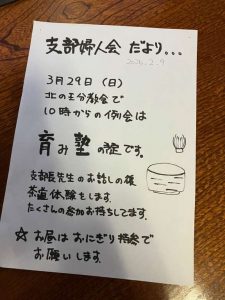 支部婦人会 だより。。。
2026.2.9
3月29日（日）
北の王分教会で
10時からの例会は
育み塾の記です。
支部長先生のお話しの後
茶道体験をします。
たくさんの参加お待ちしてます。
☆ お昼はおにぎり持参で
お願いします。